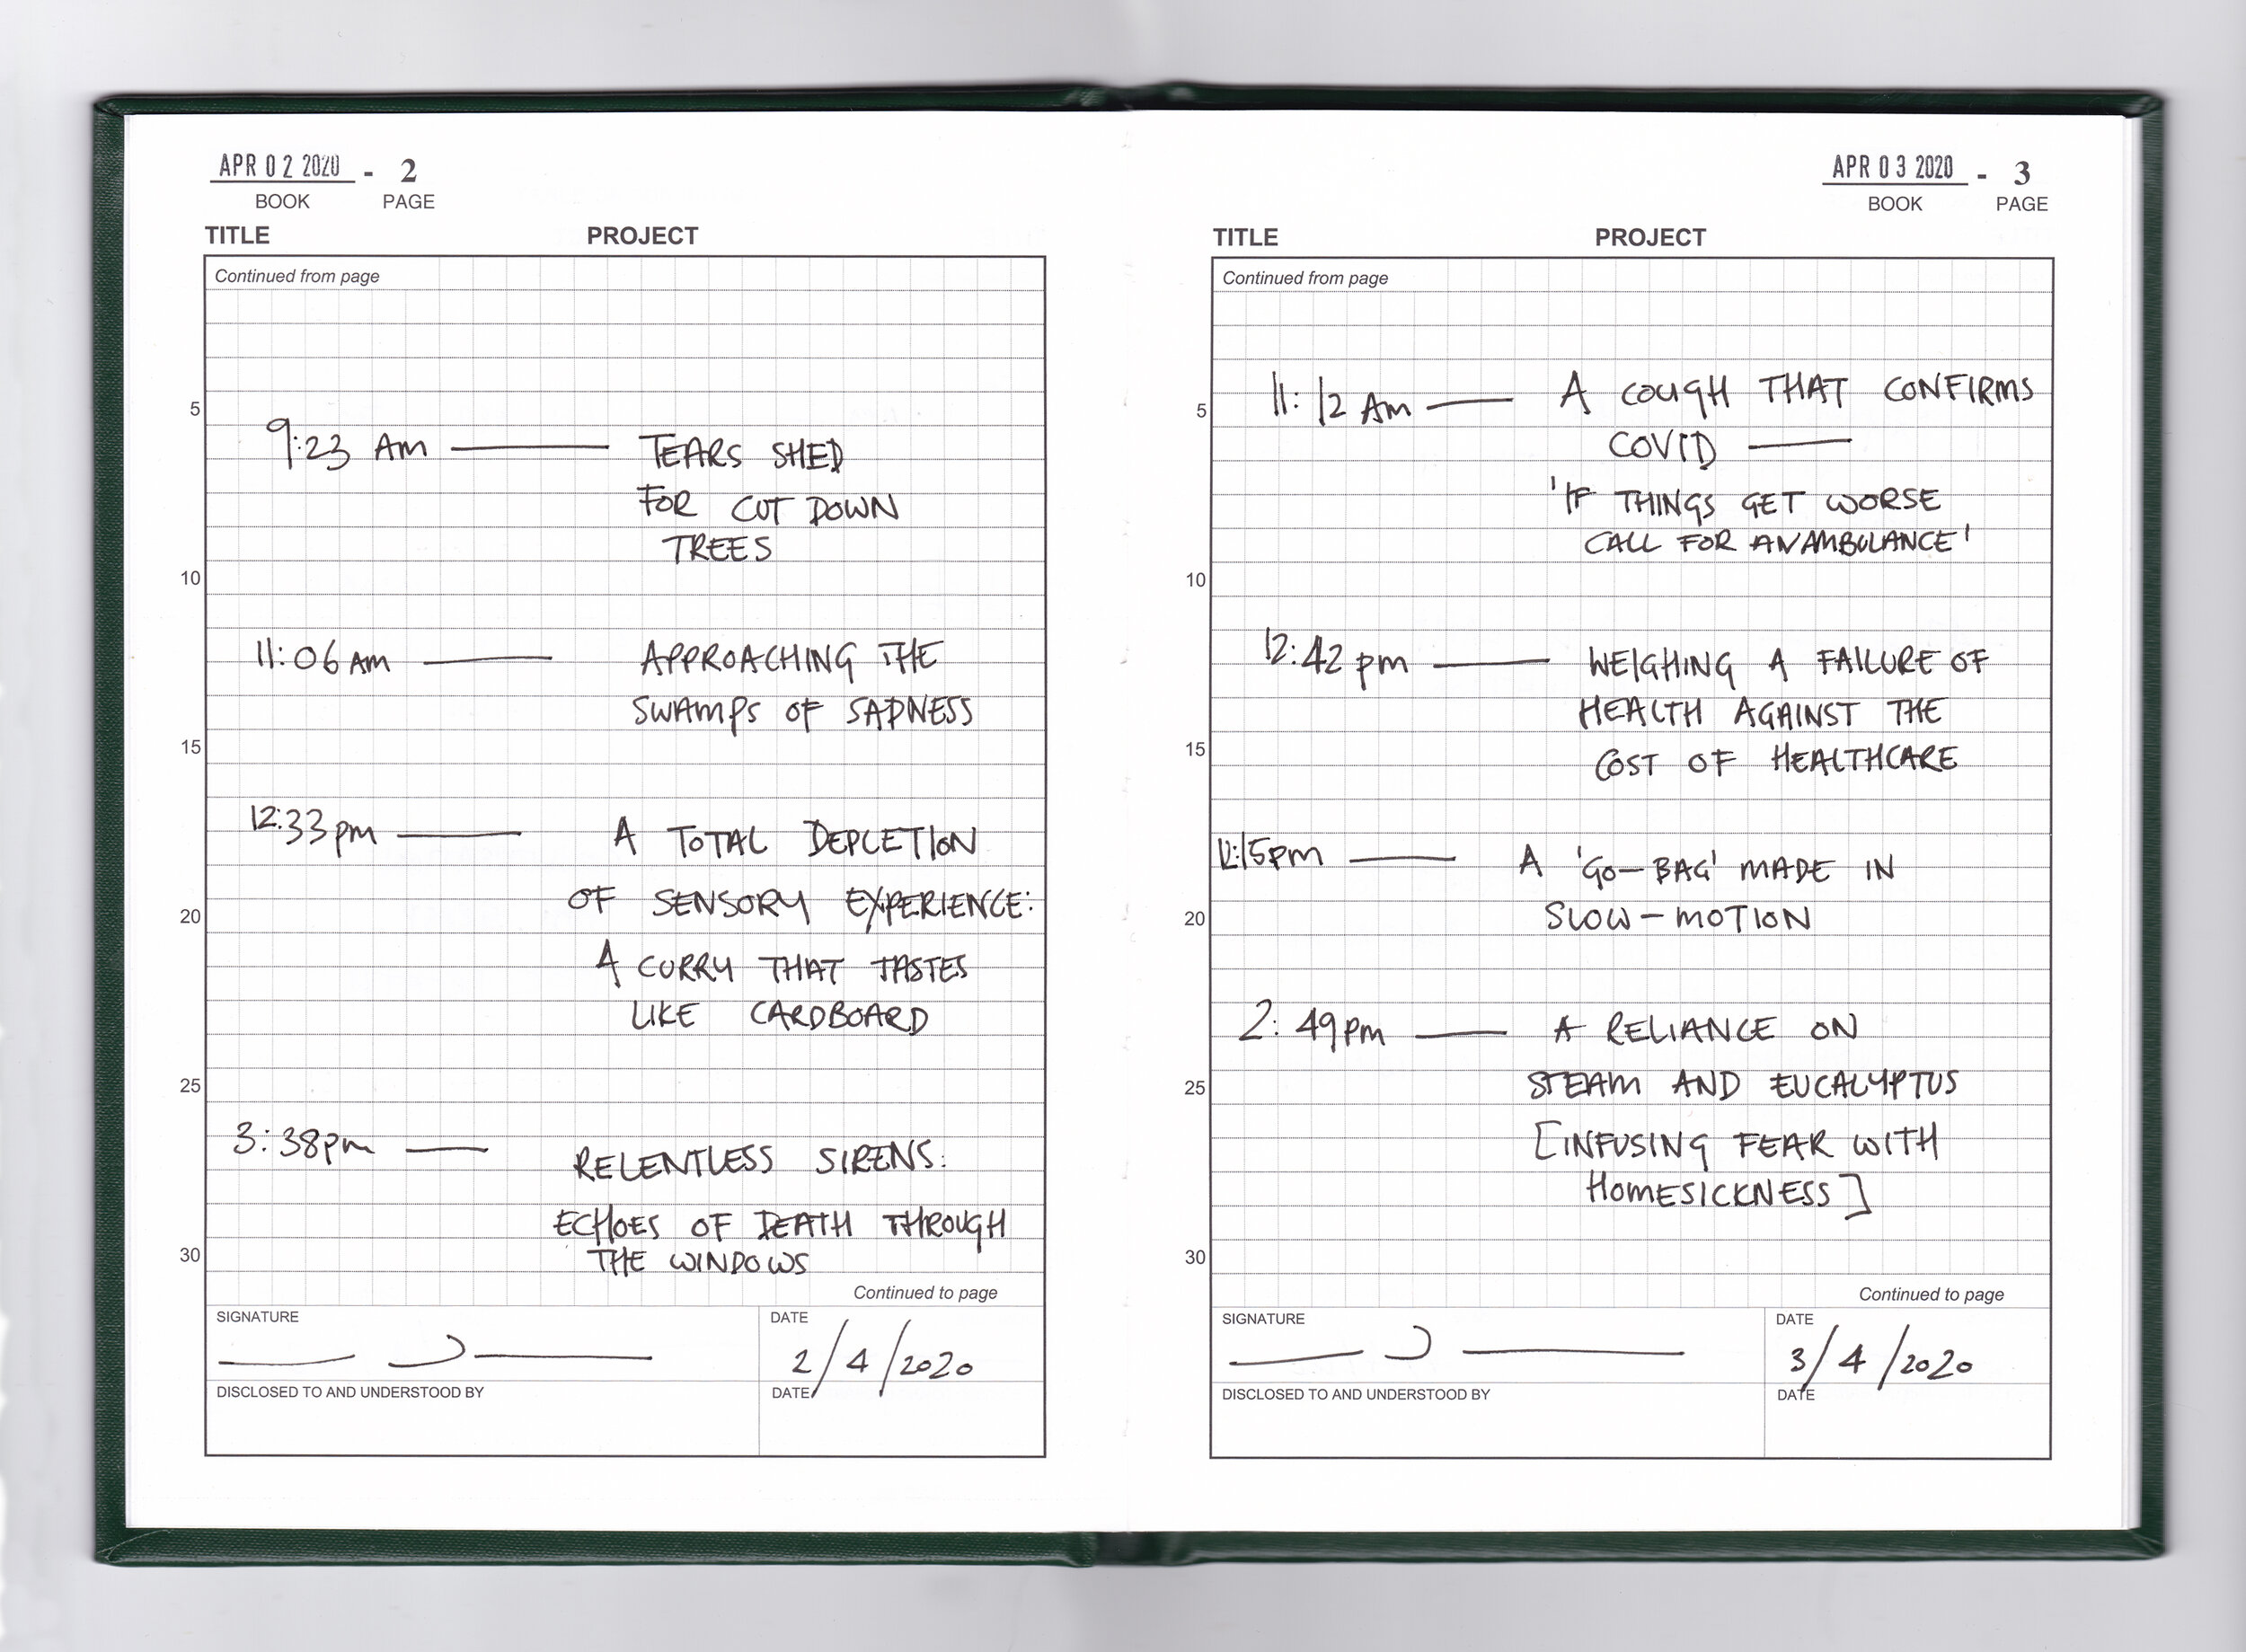 APR 02 2020 - 2
BOOK PAGE
TITLE PROJECT
Continued from page
5
9:23 AM — TEARS SHED
FOR CUT DOWN
TREES
10
11:06 AM — APPROACHING THE
SWAMPS OF SADNESS
15
12:33 pm — A TOTAL DEPLETION
OF SENSORY EXPERIENCE:
20
A CURRY THAT TASTES
LIKE CARDBOARD
25
3:38pm — RELENTLESS SIRENS:
ECHOES OF DEATH THROUGH
30
THE WINDOWS
Continued to page
SIGNATURE DATE
2/4/2020
DISCLOSED TO AND UNDERSTOOD BY DATE
APR 03 2020 - 3
BOOK PAGE
TITLE PROJECT
Continued from page
5
11:12 AM — A COUGH THAT CONFIRMS
COVID —
'IF THINGS GET WORSE
CALL FOR AN AMBULANCE'
10
12:42 pm — WEIGHING A FAILURE OF
HEALTH AGAINST THE
15
COST OF HEALTHCARE
:15pm — A 'GO-BAG' MADE IN
20
SLOW-MOTION
2:49pm — A RELIANCE ON
25
STEAM AND EUCALYPTUS
[INFUSING FEAR WITH
HOMESICKNESS]
30
Continued to page
SIGNATURE DATE
3/4/2020
DISCLOSED TO AND UNDERSTOOD BY DATE